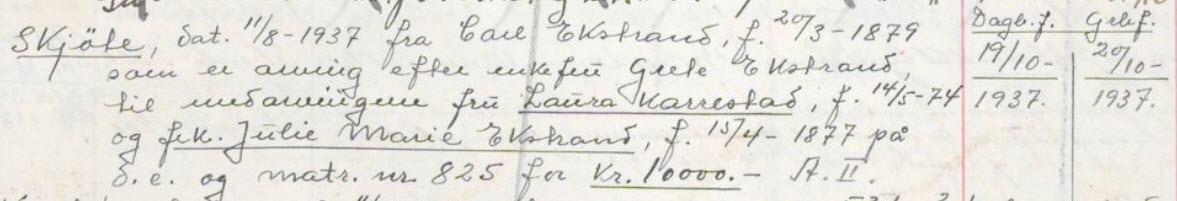 Dagb.f. Grbf.
Skjöte, dat. 11/8-1937 fra Carl Ekstrand, f. 20/3-1879 19/10- 20/10-
som er arving efter enkefrü Grete Ekstrand,
til medarvingene frü Laura Karrestad, f. 14/5-74 1937. 1937.
og frk. Jülie Marie Ekstrand, f. 15/4-1877 på
d.e. og matr. nr. 825 for Kr. 10000.- A. II.